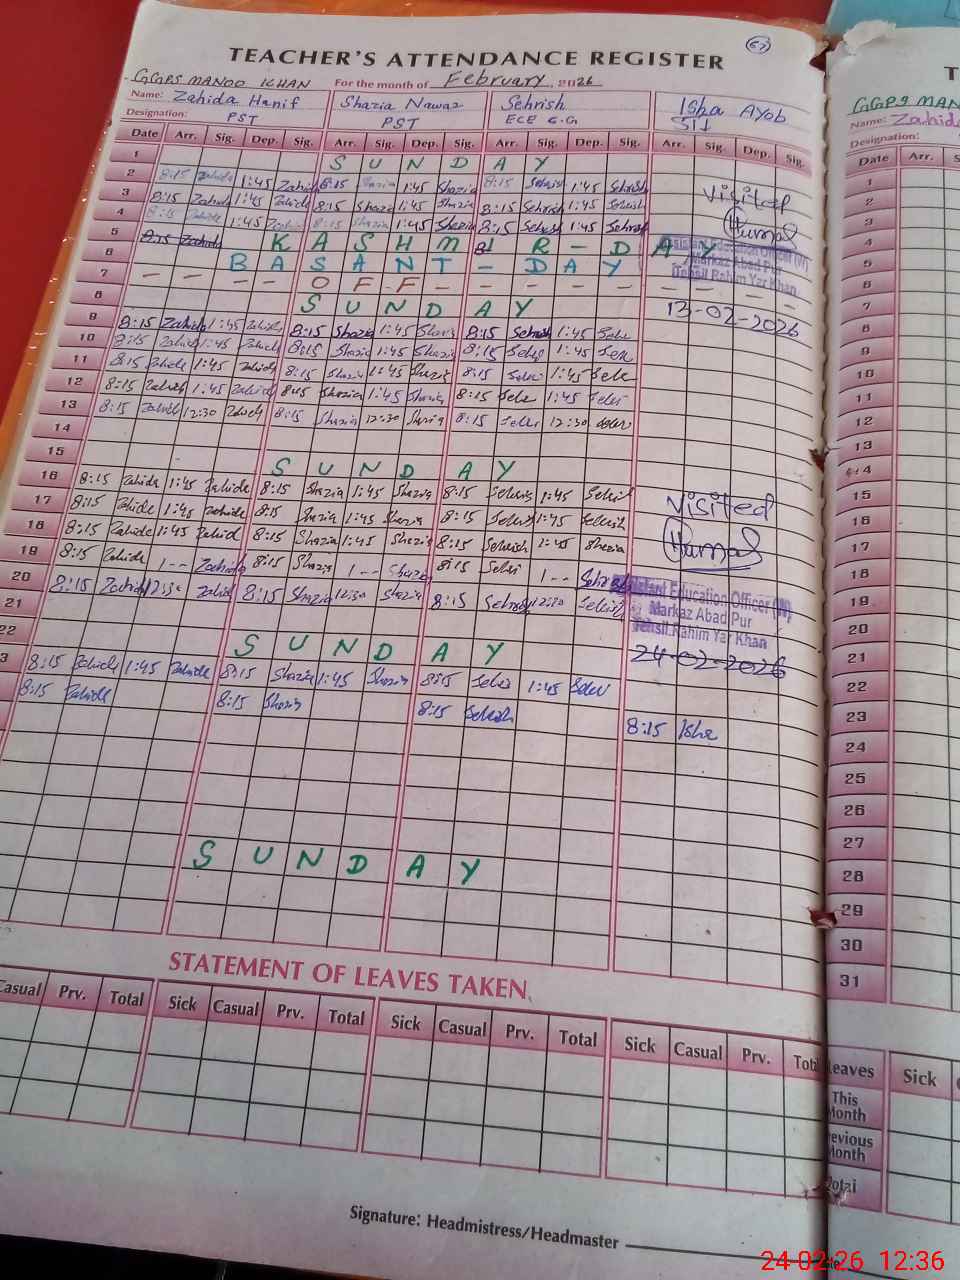 67
TEACHER'S ATTENDANCE REGISTER
GGPS MANOO KHAN For the month of February 2026
Name: Zahida Hanif Shazia Nawaz Sehrish Isha Ayob
Designation: PST PST ECE C.G
Date Arr. Sig. Dep. Sig. Arr. Sig. Dep. Sig. Arr. Sig. Dep. Sig. Arr. Sig. Dep. Sig.
1 SUNDAY
2 8:15 Zahida 1:45 Zahida 8:15 Shazia 1:45 Shazia 8:15 Sehrish 1:45 Sehrish
3 8:15 Zahida 1:45 Zahida 8:15 Shazia 1:45 Shazia 8:15 Sehrish 1:45 Sehrish
4 8:15 Zahida 1:45 Zahida 8:15 Shazia 1:45 Shazia 8:15 Sehrish 1:45 Sehrish
5 8:15 Zahida KASHMIR-DAY
6 BASANT-DAY
7 — — — — OFF — — — —
8 SUNDAY
Visited
Assistant Education Officer (W)
Markaz Abad Pur
Tehsil Rahim Yar Khan
13-02-2026
9 8:15 Zahida 1:45 Zahida 8:15 Shazia 1:45 Shazia 8:15 Sehrish 1:45
10 8:15 Zahida 1:45 Zahida 8:15 Shazia 1:45 Shazia 8:15 1:45
11 8:15 Zahida 1:45 Zahida 8:15 Shazia 1:45 Shazia 8:15 1:45
12 8:15 Zahida 1:45 Zahida 8:15 Shazia 1:45 Shazia 8:15 1:45
13 8:15 Zahida 12:30 Zahida 8:15 Shazia 12:30 Shazia 8:15 12:30
14
15 SUNDAY
16 8:15 Zahida 1:45 Zahida 8:15 Shazia 1:45 Shazia 8:15 Sehrish 1:45 Sehrish
17 8:15 Zahida 1:45 Zahida 8:15 Shazia 1:45 Shazia 8:15 Sehrish 1:45 Sehrish
18 8:15 Zahida 1:45 Zahida 8:15 Shazia 1:45 Shazia 8:15 Sehrish 1:45 Shazia
19 8:15 Zahida 1-- Zahida 8:15 Shazia 1-- Shazia 8:15 1-- Sehrish
20 8:15 Zahida 12:30 Zahida 8:15 Shazia 12:30 Shazia 8:15 Sehrish 12:30 Sehrish
21
22 SUNDAY
Visited
Assistant Education Officer (W)
Markaz Abad Pur
Tehsil Rahim Yar Khan
24-02-2026
3 8:15 Zahida 1:45 Zahida 8:15 Shazia 1:45 Shazia 8:15 1:45
8:15 Zahida 8:15 Shazia 8:15 Sehrish 8:15 Isha
SUNDAY
STATEMENT OF LEAVES TAKEN
Casual Prv. Total Sick Casual Prv. Total Sick Casual Prv. Total Sick Casual Prv. Total
Signature: Headmistress/Headmaster
T
GGPS MAN
Name: Zahida
Designation:
Date Arr. Sig.
1
2
3
4
5
6
7
8
9
10
11
12
13
14
15
16
17
18
19
20
21
22
23
24
25
26
27
28
29
30
31
Leaves Sick
This Month
Previous Month
Total
24-02-26 12:36